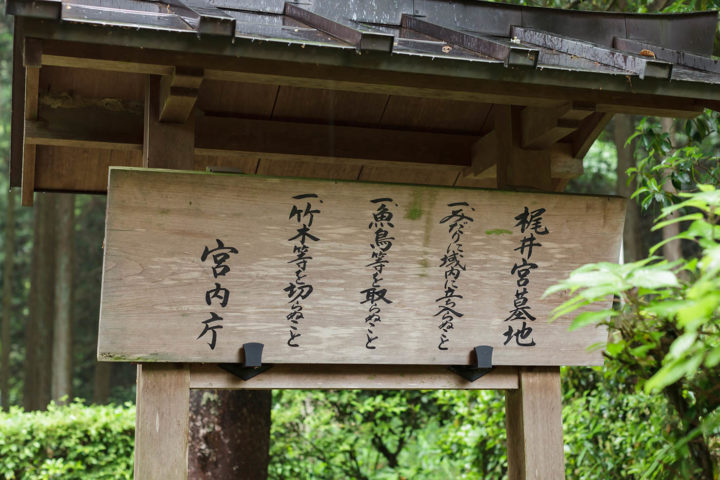 梶井宮墓地
一、みだりに域内に立入らぬこと
一、魚鳥等を取らぬこと
一、竹木等を切らぬこと
宮内庁